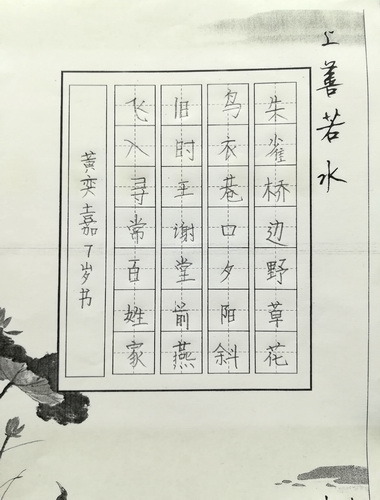 上善若水
朱雀桥边野草花
鸟衣巷口夕阳斜
旧时王谢堂前燕
飞入寻常百姓家
黄奕嘉7岁书